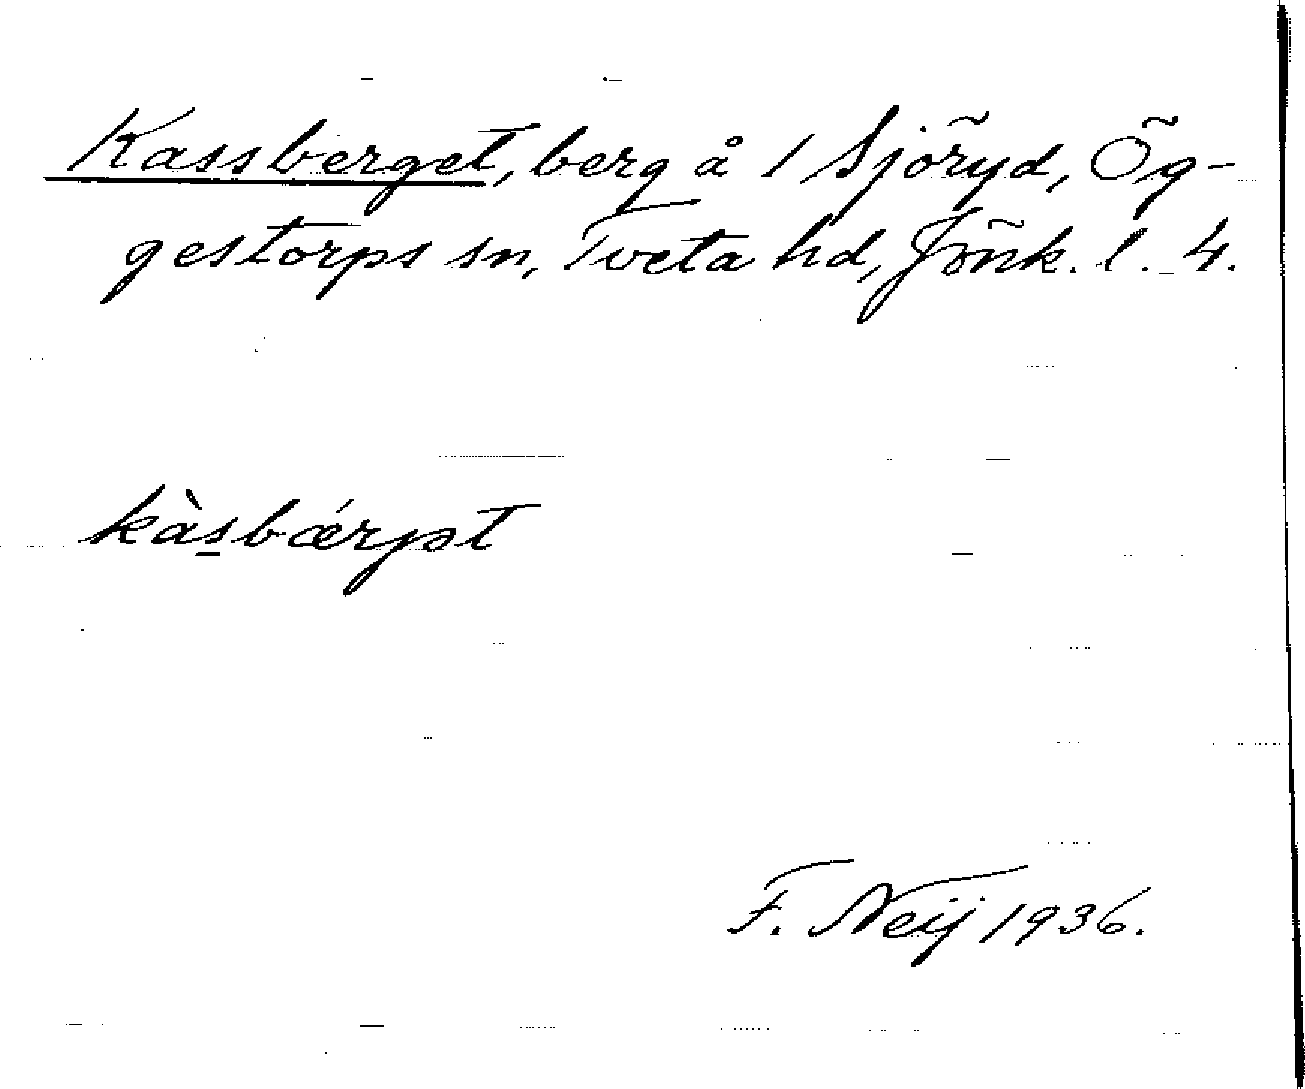 Kassberget, berg å 1 Sjöryd, Ög-
gestorps sn, Tveta hd, Jönk. l. 4.
kàs̠bǽrjət
F. Neij 1936.